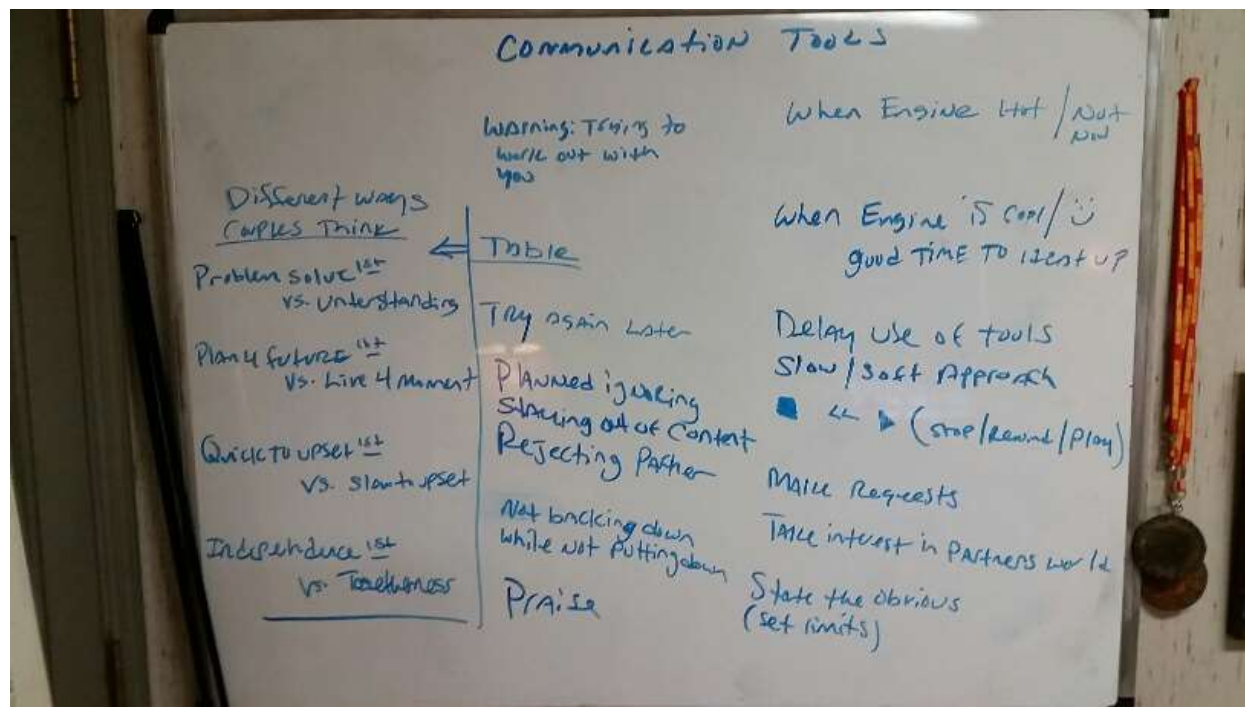 Communication Tools
Different ways
Couples Think
Problem solve 1st
vs. Understanding
Plan 4 future 1st
vs. Live 4 moment
Quick to upset 1st
vs. Slow to upset
Independence 1st
vs. Togetherness
Warning: Trying to
work out with
you
Table
Try again Later
Planned ignoring
Staying out of Content
Rejecting Partner
Not backing down
while not putting down
Praise
When Engine Hot / Not
Now
When Engine is Cool /
good TIME TO Heat up
Delay use of tools
Slow / Soft Approach
<< (Stop / Rewind / Play)
Make Requests
Take interest in Partners world
State the obvious
(set limits)